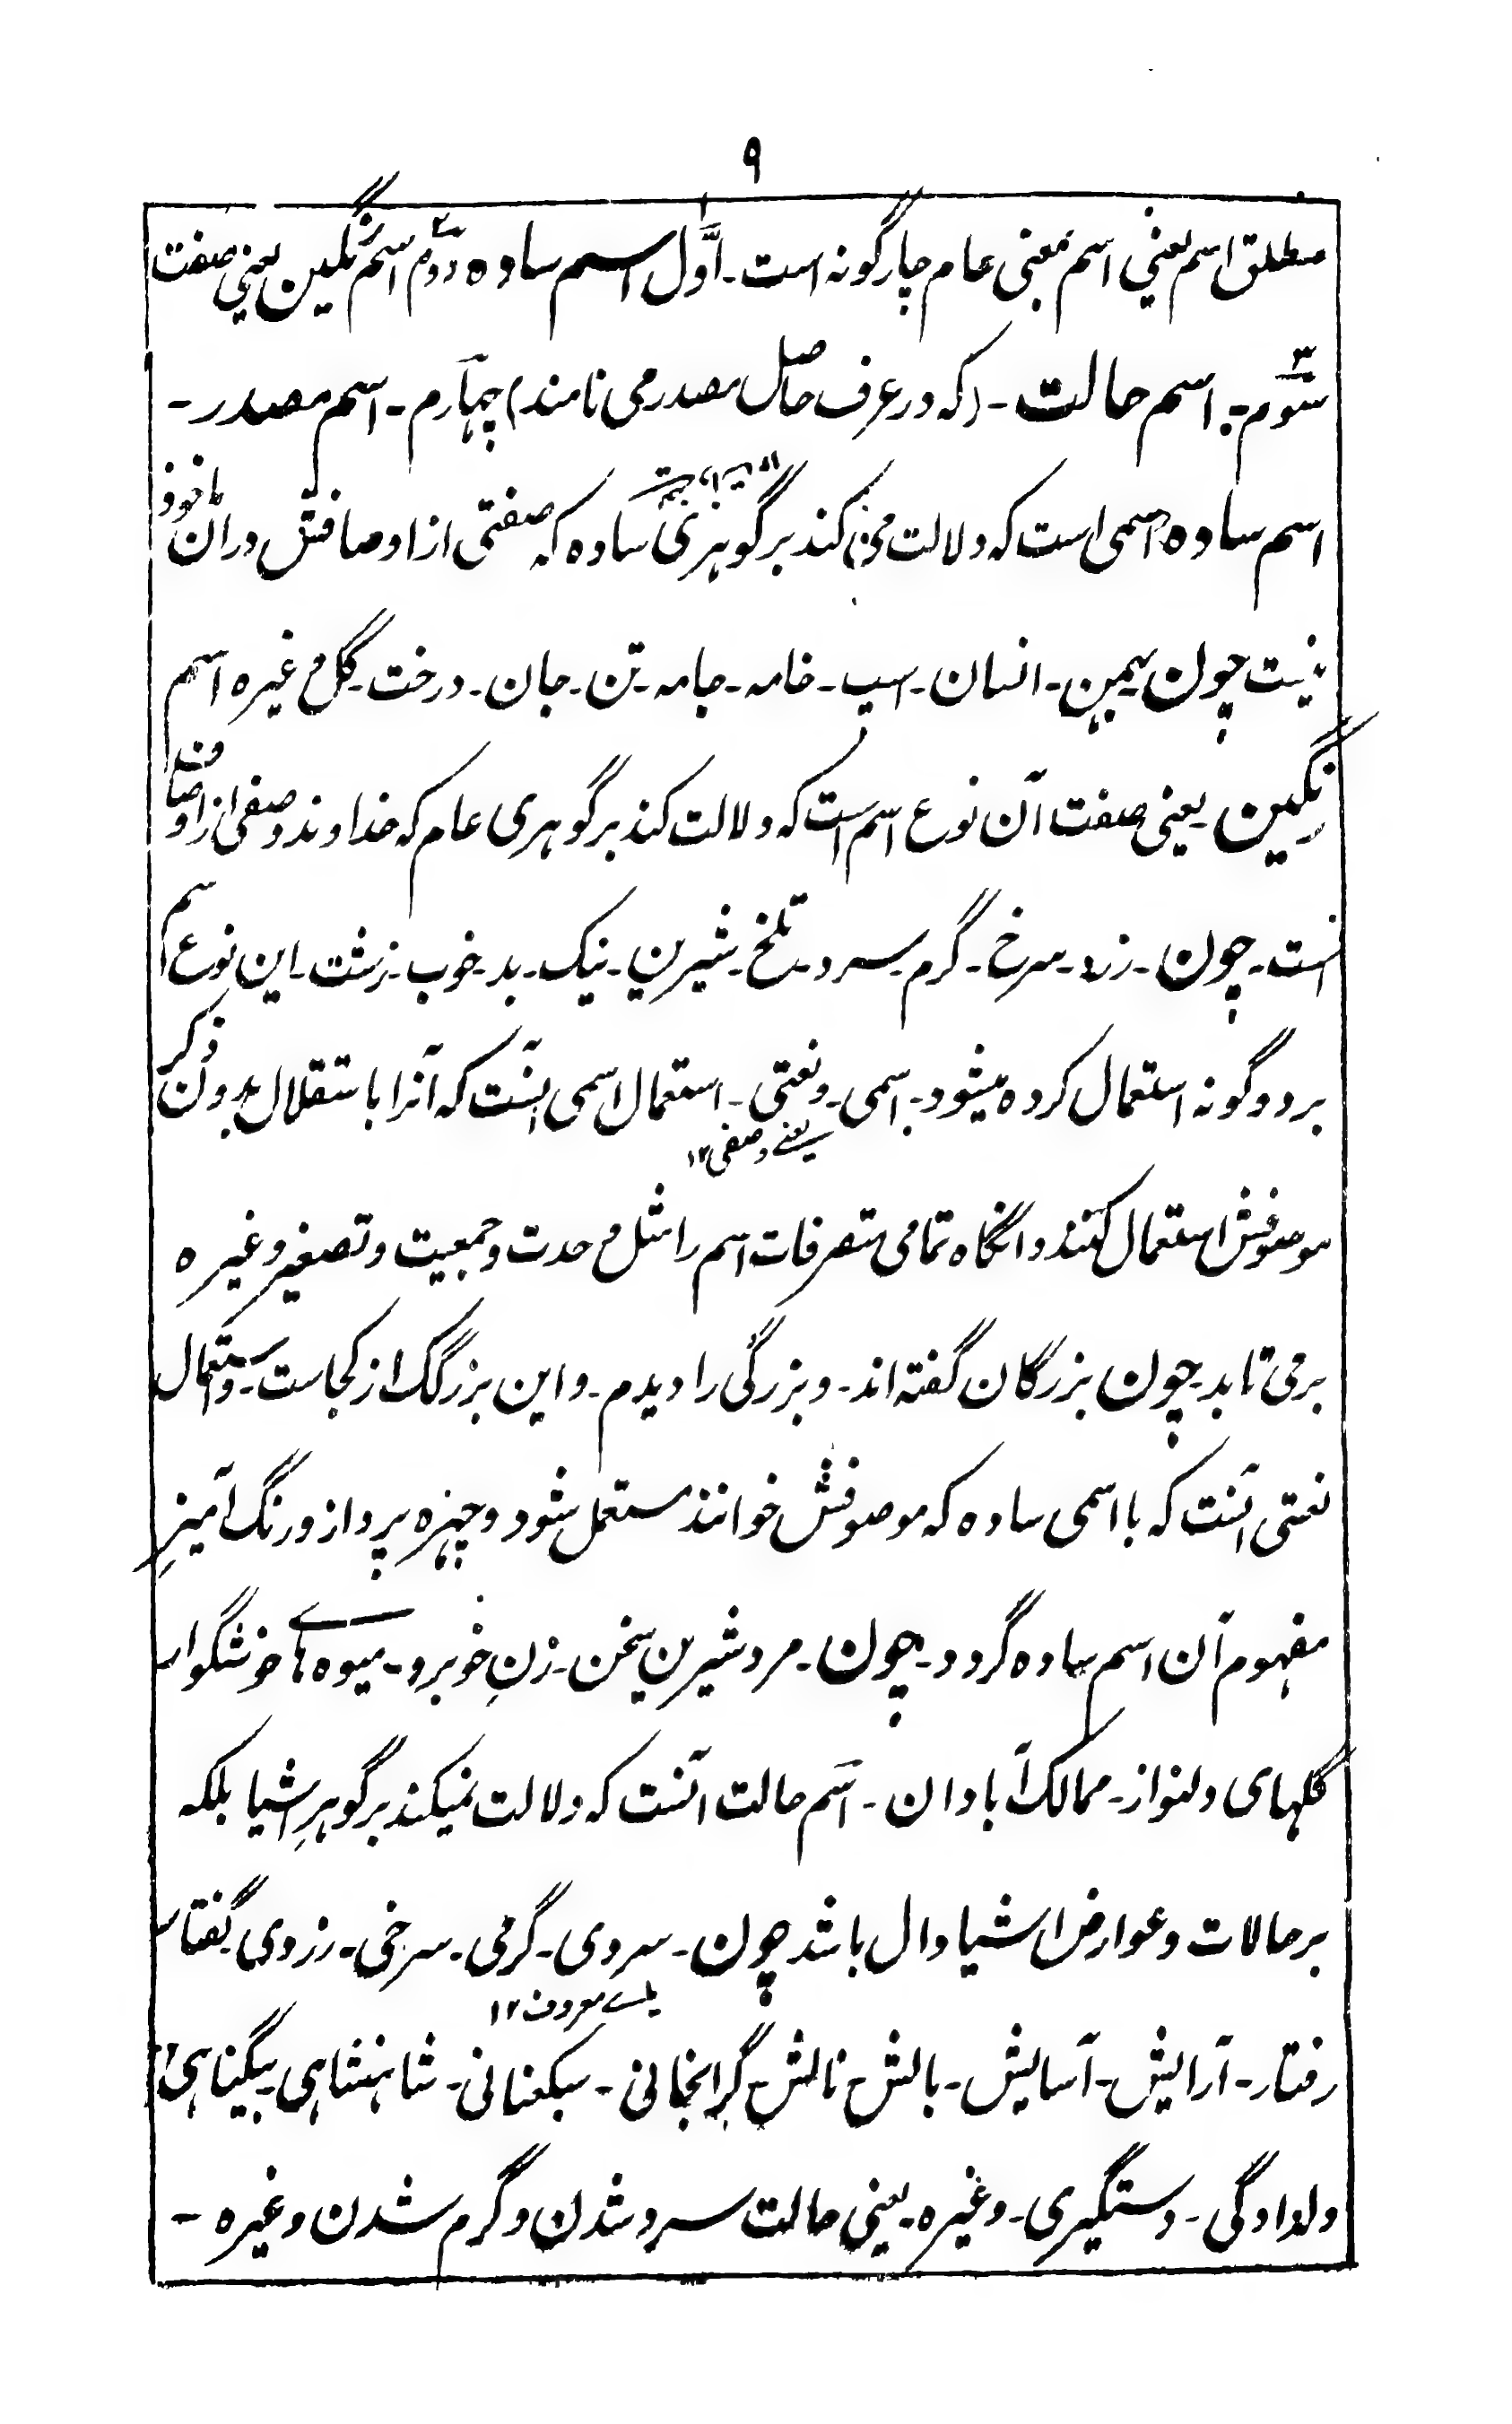 ۹
مطلق اسم یعنی اسم بمعنی عام چارگونه است ۔ اوّل اسم ساده دوّم اسم رنگین یعنی صفت
سوّم ۔ اسم حالت ۔ (که در عرف حاصل مصدر می نامند) چهارم ۔ اسم مصدر ۔
اسم ساده اسمی است که دلالت می کند بر گوهری ساده که صفتی از اوصافش دران ماخوذ
نیست چون زمین ۔ انسان ۔ اسپ ۔ خامه ۔ جامه ۔ تن ۔ جان ۔ درخت ۔ گل و غیره اسم
رنگین یعنی صفت آن نوع اسم است که دلالت کند بر گوهری عام که خداوند وصفی از اوصاف
است ۔ چون ۔ زرد ۔ سرخ ۔ گرم ۔ سرد ۔ تلخ ۔ شیرین ۔ نیک ۔ بد ۔ خوب ۔ زشت ۔ این نوع اسم
بر دو گونه استعمال کرده میشود ۔ اسمی ۔ و نعتی ۔ استعمال اسمی آنست که آنرا باستقلال بدون ذکر
یعنے وصفی ۱۲
موصوفش استعمال کنند و انگاه تمامی تصرفات اسم را مثل وحدت و جمعیت و تصغیر و غیره
برمی تابد ۔ چون بزرگان گفته اند ۔ و بزرگی را دیدم ۔ و این بزرگک از کجاست ۔ و استعمال
نعتی آنست که با اسمی ساده که موصوفش خوانند مستعمل شود و چهره پرداز و رنگ آمیزِ
مفهوم آن اسم ساده گردد ۔ چون ۔ مرد شیرین سخن ۔ زنِ خوبرو ۔ میوه هاے خوشگوار
گلهای دلنواز ۔ ممالک آبادان ۔ اسم حالت آنست که دلالت نمیکند بر گوهرِ اشیا بلکه
بر حالات و عوارض اشیا دال باشد چون ۔ سردی ۔ گرمی ۔ سرخی ۔ زردی گفتار
یاے معروف ۱۲
رفتار ۔ آرایش ۔ آسایش ۔ بالش نالش گرانجانی ۔ سبکعنانی ۔ شاهنشاهی ۔ بیگناهی
دلدادگی ۔ دستگیری ۔ و غیره ۔ یعنی حالت سرد شدن و گرم شدن و غیره ۔